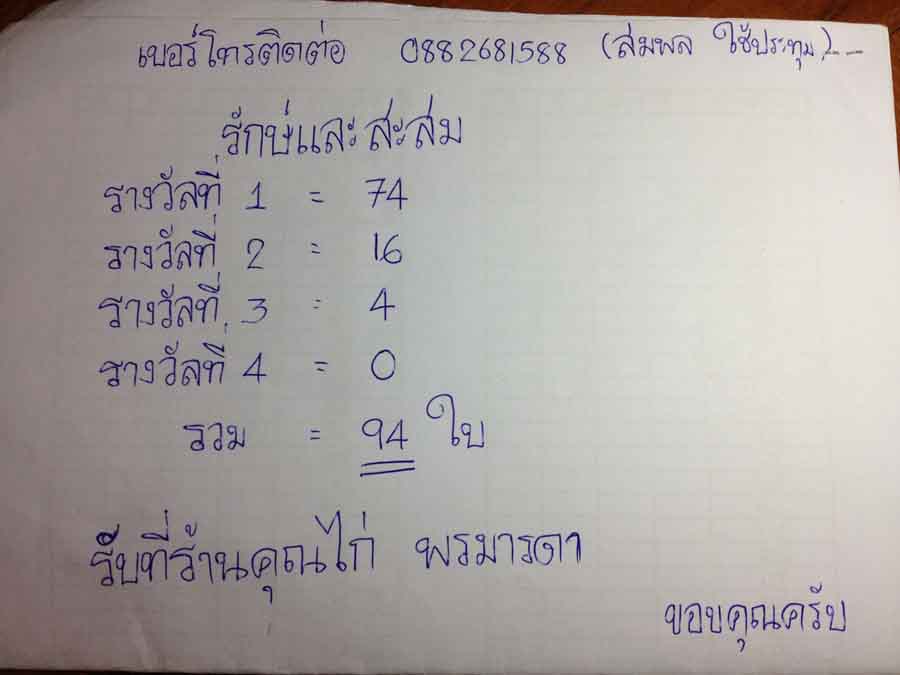 เบอร์โทรติดต่อ 0882681588 (สมพล ใช้ประทุม)--
รักษ์และสะสม
รางวัลที่ 1 = 74
รางวัลที่ 2 = 16
รางวัลที่ 3 = 4
รางวัลที่ 4 = 0
รวม = 94 ใบ
รับที่ร้านคุณไก่ พรมารดา
ขอบคุณครับ